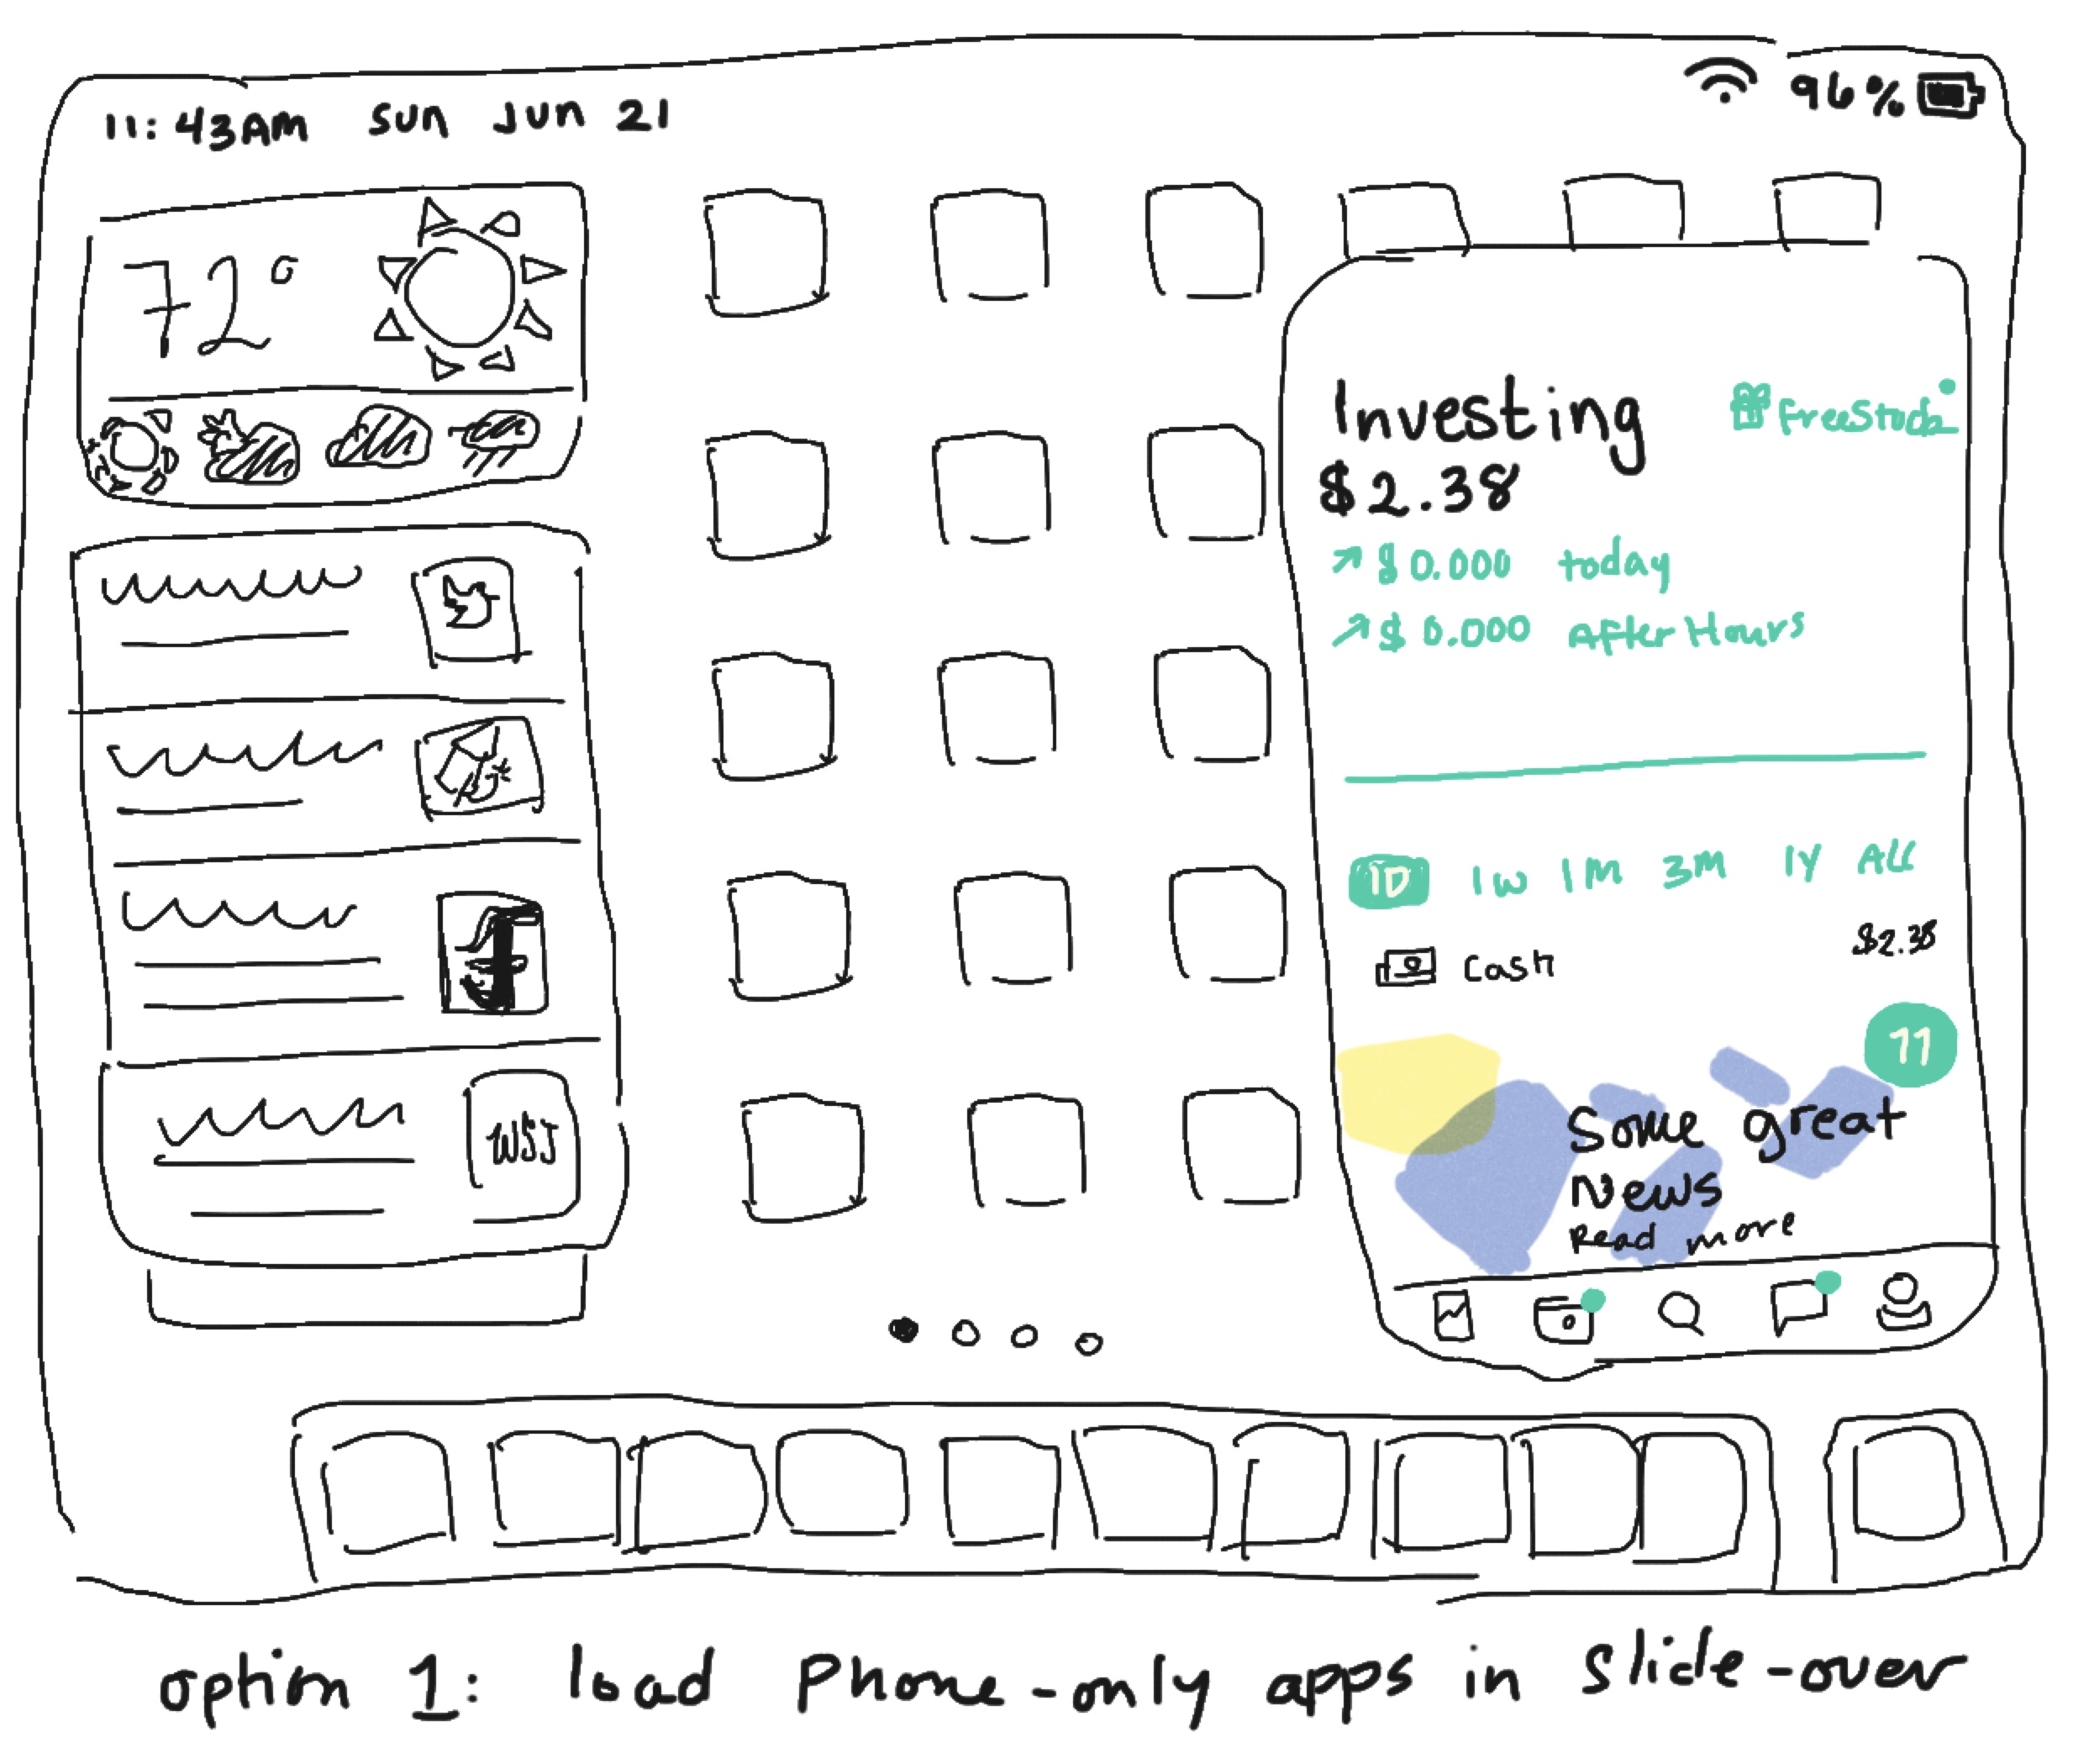 11:43AM Sun Jun 21
96%
72°
WSJ
Investing
Free Stock
$2.38
↗ $0.000 today
↗ $0.000 After Hours
1D 1W 1M 3M 1Y ALL
Cash
$2.38
11
Some great
News
Read more
option 1: load Phone-only apps in Slide-over